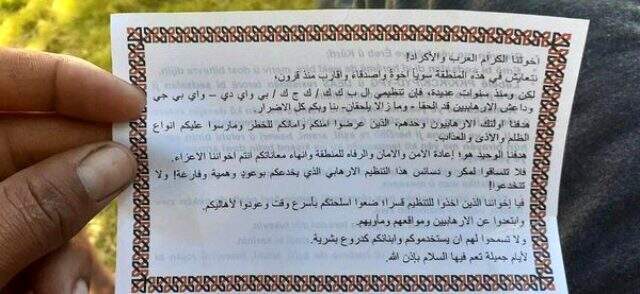 اخوتنا الكرام العرب والأكراد!
نتعايش في هذه المنطقة سويا إخوة وأصدقاء وأقارب منذ قرون،
لكن ومنذ سنوات عديدة، فإن تنظيمي ال ب ك ك / ك ج ك / بي واي دي – واي بي جي
وداعش الارهابيين قد الحقا - وما زالا يلحقان- بنا وبكم كل الاضرار.
هدفنا اولئك الارهابيون وحدهم، الذين عرضوا امنكم وامانكم للخطر ومارسوا عليكم انواع
الظلم والأذى والعذاب.
هدفنا الوحيد هو! إعادة الامن والامان والرفاه للمنطقة وانهاء معاناتكم انتم اخواننا الاعزاء.
فلا تنساقوا لمكر و دسائس هذا التنظيم الارهابي الذي يخدعكم بوعود وهمية وفارغة! ولا
تنخدعوا!
فيا إخواننا الذين اخذوا للتنظيم قسرا؛ ضعوا اسلحتكم بأسرع وقت وعودوا لأهاليكم.
وابتعدوا عن الارهابيين ومواقعهم ومآويهم.
ولا تسمحوا لهم ان يستخدموكم وابنائكم كدروع بشرية.
لأيام جميلة تعم فيها السلام بإذن الله.